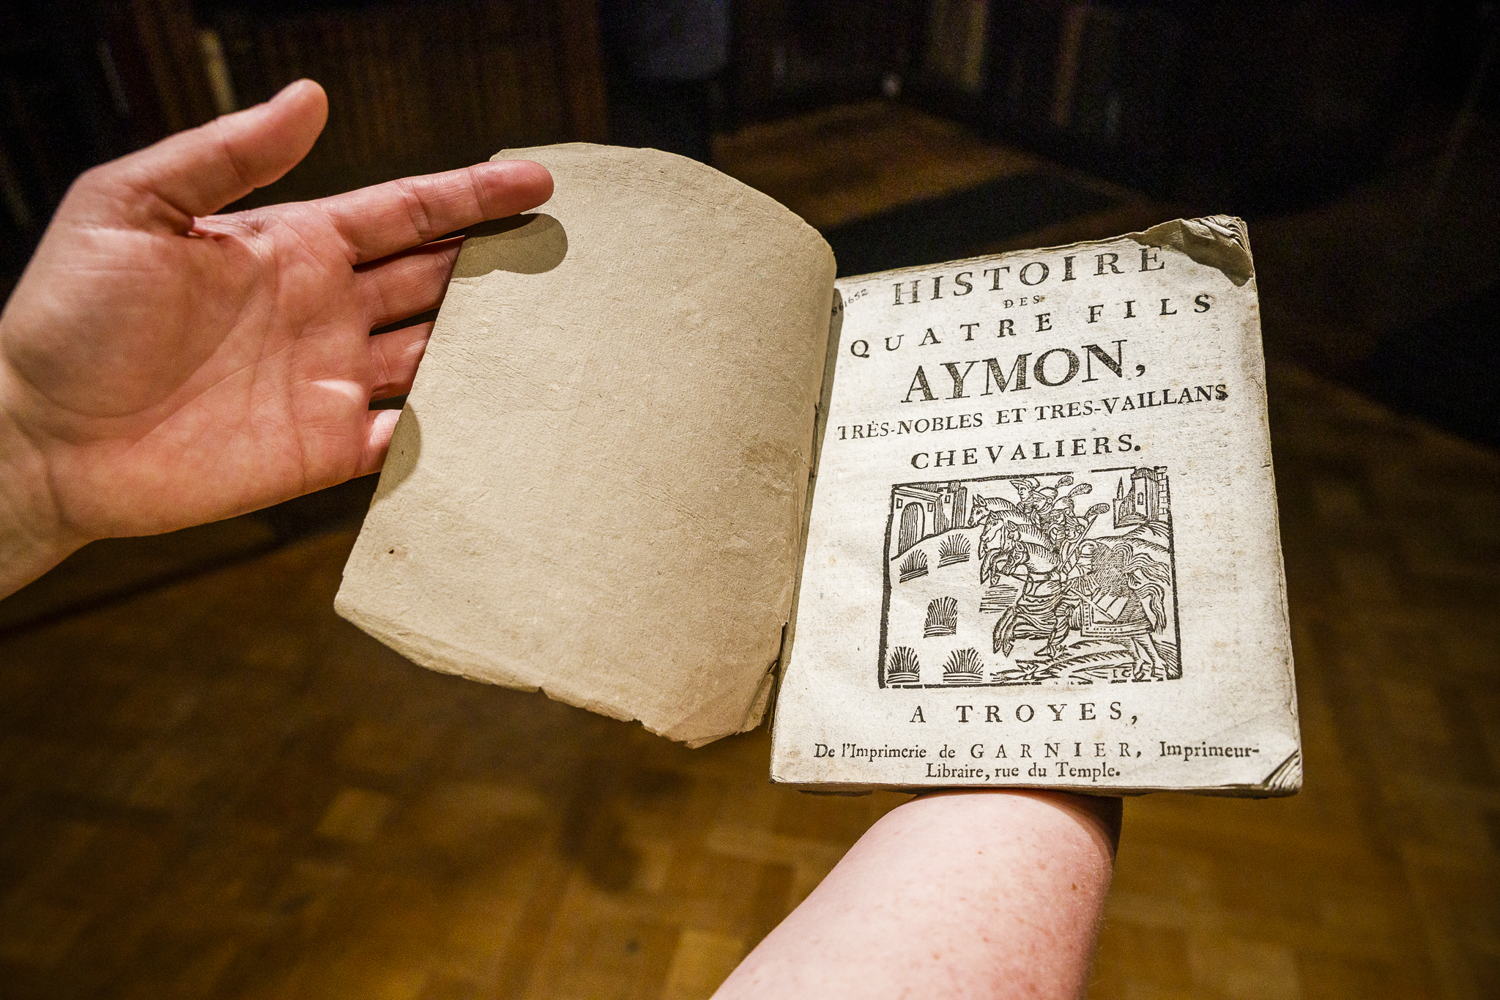 HISTOIRE
DES
QUATRE FILS
AYMON,
TRÈS-NOBLES ET TRES-VAILLANS
CHEVALIERS.
A TROYES,
De l'Imprimerie de GARNIER, Imprimeur-
Libraire, rue du Temple.